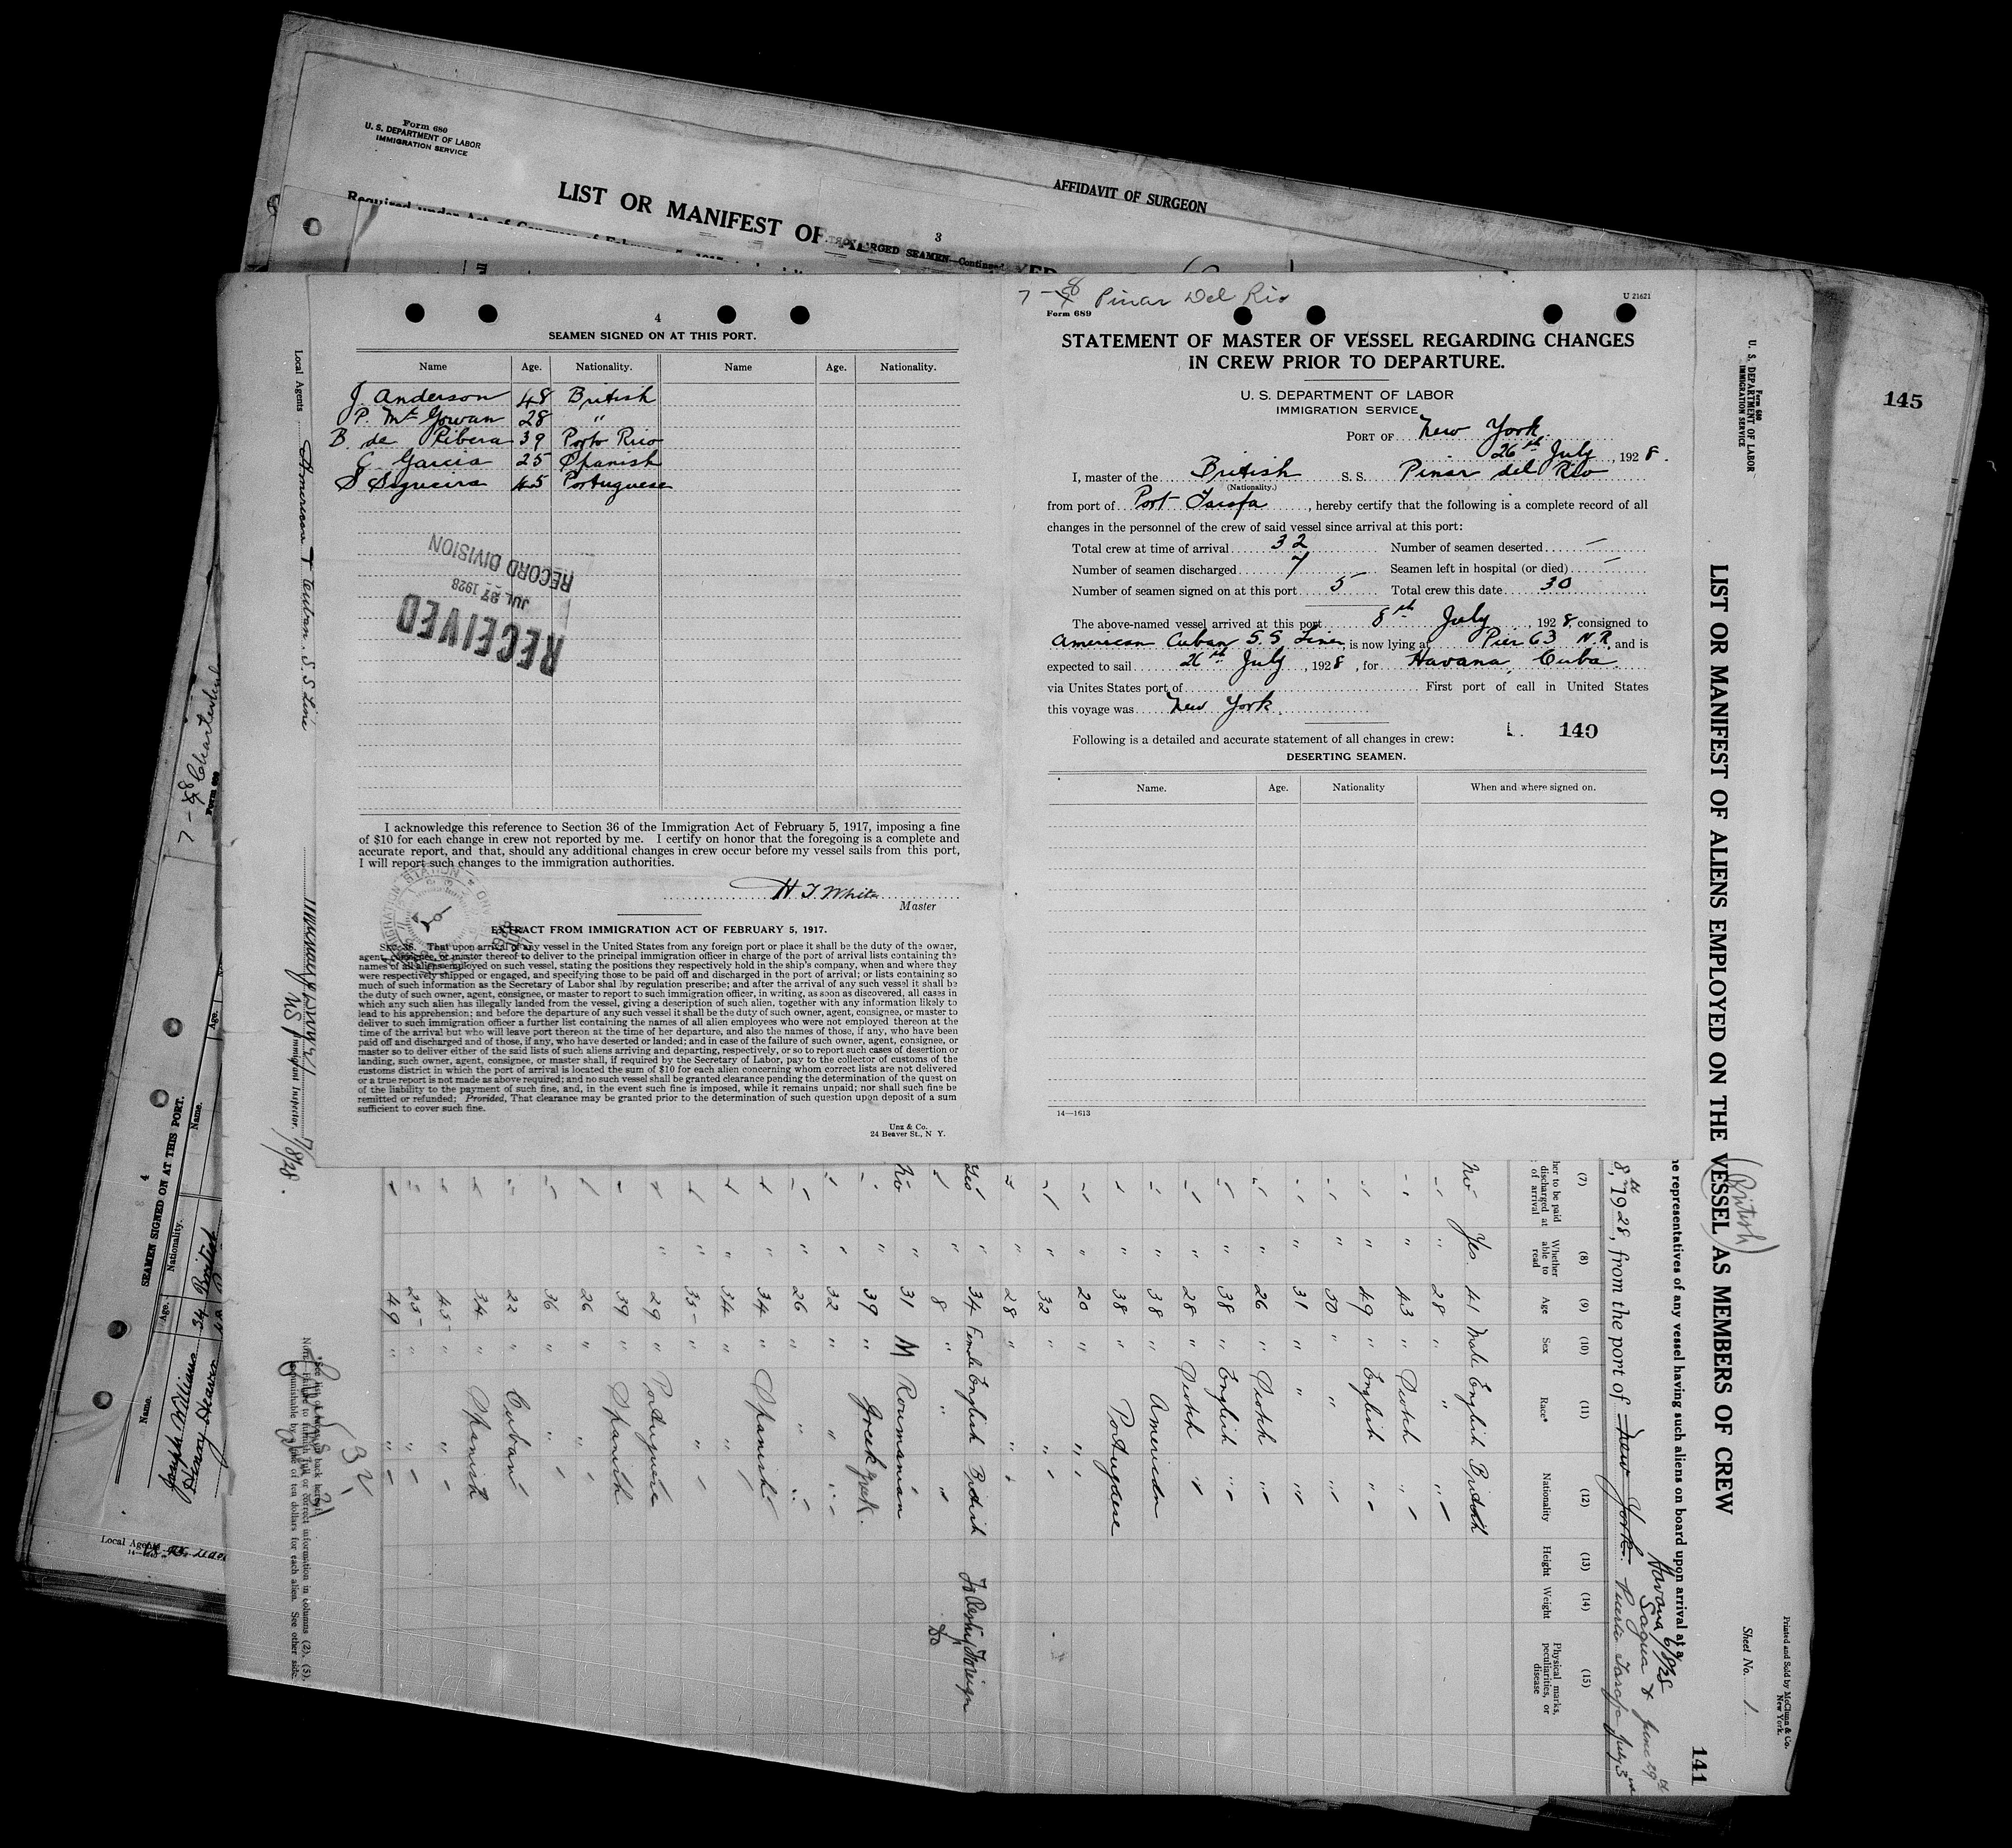 Form 680
U. S. DEPARTMENT OF LABOR
IMMIGRATION SERVICE
AFFIDAVIT OF SURGEON
LIST OR MANIFEST OF
3
SEAMEN—Continued
145
4
SEAMEN SIGNED ON AT THIS PORT.
Name Age. Nationality. Name Age. Nationality.
J. Anderson 48 British
P. McGowan 28 "
B de Ribera 39 Porto Rico
C. Garcia 25 Spanish
S Sequeira 45 Portuguese
RECEIVED
JUL 27 1928
RECORD DIVISION
I acknowledge this reference to Section 36 of the Immigration Act of February 5, 1917, imposing a fine
of $10 for each change in crew not reported by me. I certify on honor that the foregoing is a complete and
accurate report, and that, should any additional changes in crew occur before my vessel sails from this port,
I will report such changes to the immigration authorities.
H. T. White
Master
EXTRACT FROM IMMIGRATION ACT OF FEBRUARY 5, 1917.
SEC. 36. That upon arrival of any vessel in the United States from any foreign port or place it shall be the duty of the owner,
agent, consignee, or master thereof to deliver to the principal immigration officer in charge of the port of arrival lists containing the
names of all aliens employed on such vessel, stating the positions they respectively hold in the ship's company, when and where they
were respectively shipped or engaged, and specifying those to be paid off and discharged in the port of arrival; or lists containing so
much of such information as the Secretary of Labor shal lby regulation prescribe; and after the arrival of any such vessel it shall be
the duty of such owner, agent, consignee, or master to report to such immigration officer, in writing, as soon as discovered, all cases in
which any such alien has illegally landed from the vessel, giving a description of such alien, together with any information likely to
lead to his apprehension; and before the departure of any such vessel it shall be the duty of such owner, agent, consignee, or master to
deliver to such immigration officer a further list containing the names of all alien employees who were not employed thereon at the
time of the arrival but who will leave port thereon at the time of her departure, and also the names of those, if any, who have been
paid off and discharged and of those, if any, who have deserted or landed; and in case of the failure of such owner, agent, consignee, or
master so to deliver either of the said lists of such aliens arriving and departing, respectively, or so to report such cases of desertion or
landing, such owner, agent, consignee, or master shall, if required by the Secretary of Labor, pay to the collector of customs of the
customs district in which the port of arrival is located the sum of $10 for each alien concerning whom correct lists are not delivered
or a true report is not made as above required; and no such vessel shall be granted clearance pending the determination of the quest on
of the liability to the payment of such fine, and, in the event such fine is imposed, while it remains unpaid; nor shall such fine be
remitted or refunded; Provided, That clearance may be granted prior to the determination of such question upon deposit of a sum
sufficient to cover such fine.
Unz & Co.
24 Beaver St., N Y.
7-8 Pinar Del Rio
Form 689
U 21621
STATEMENT OF MASTER OF VESSEL REGARDING CHANGES
IN CREW PRIOR TO DEPARTURE.
U. S. DEPARTMENT OF LABOR
IMMIGRATION SERVICE
PORT OF New York.
26th July, 1928.
I, master of the British S. S. Pinar del Rio
(Nationality.)
from port of Port Tarafa, hereby certify that the following is a complete record of all
changes in the personnel of the crew of said vessel since arrival at this port:
Total crew at time of arrival 32 Number of seamen deserted —
Number of seamen discharged 7 Seamen left in hospital (or died) —
Number of seamen signed on at this port 5 Total crew this date 30
The above-named vessel arrived at this port 8th July, 1928, consigned to
American Cuban S.S. Line, is now lying at Pier 63 N.R. and is
expected to sail 26th July, 1928, for Havana, Cuba.
via Unites States port of First port of call in United States
this voyage was New York.
L. 140
Following is a detailed and accurate statement of all changes in crew:
DESERTING SEAMEN.
Name. Age. Nationality When and where signed on.
14—1613
Form 680
U. S. DEPARTMENT OF LABOR
IMMIGRATION SERVICE
LIST OR MANIFEST OF ALIENS EMPLOYED ON THE VESSEL AS MEMBERS OF CREW
(British)
Sheet No. 1
Printed and Sold by McClunn & Co.
New York.
141
representatives of any vessel having such aliens on board upon arrival at a
8th, 1928, from the port of New York. Puerto Tarafa July 3rd
Havana 6/8/28
Sagua & June 29th
(7) (8) (9) (10) (11) (12) (13) (14) (15)
her to be paid discharged at of arrival
Whether able to read
Age Sex Race* Nationality Height Weight
Physical marks, peculiarities, or disease
No Yes 41 Male English British
" 28 " " "
" 43 " Scotch "
" 49 " English "
" 50 " " "
" 31 " " "
" 26 " Scotch "
" 38 " English "
" 28 " Scotch "
" 38 " American
" 38 " Portuguese
" 20 " " "
" 32 " " "
" 28 " " "
Yes " 34 Female English British To Reship Foreign
" " 8 " " " Do
No " 31 M Roumanian
" 39 " Greek Greek.
" 32 " " "
" 26 " " "
" 34 " Spanish
" 34 " " "
" 35 " " "
" 29 " Portuguese
39 " Spanish
26 " " "
36 " " "
22 " Cuban
34 " Spanish
45 " " "
25 " " "
49 " " "
32
Local Agents American & Cuban. S. S Line
Immigrant Inspector.
7/8/28.
7-8
Form 689
4
SEAMEN SIGNED ON AT THIS PORT.
Name. Age. Nationality. Name. Age.
Joseph Williams 34 British
Henry Heaven
Local Agents